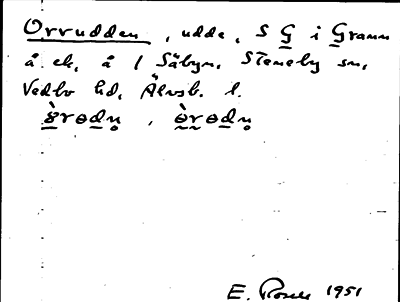 Orrudden, udde, S G i Gramm
å. ek, å 1 Säbyn, Steneby sn,
Vedbo hd, Älvsb. l.
E. Rosell 1951